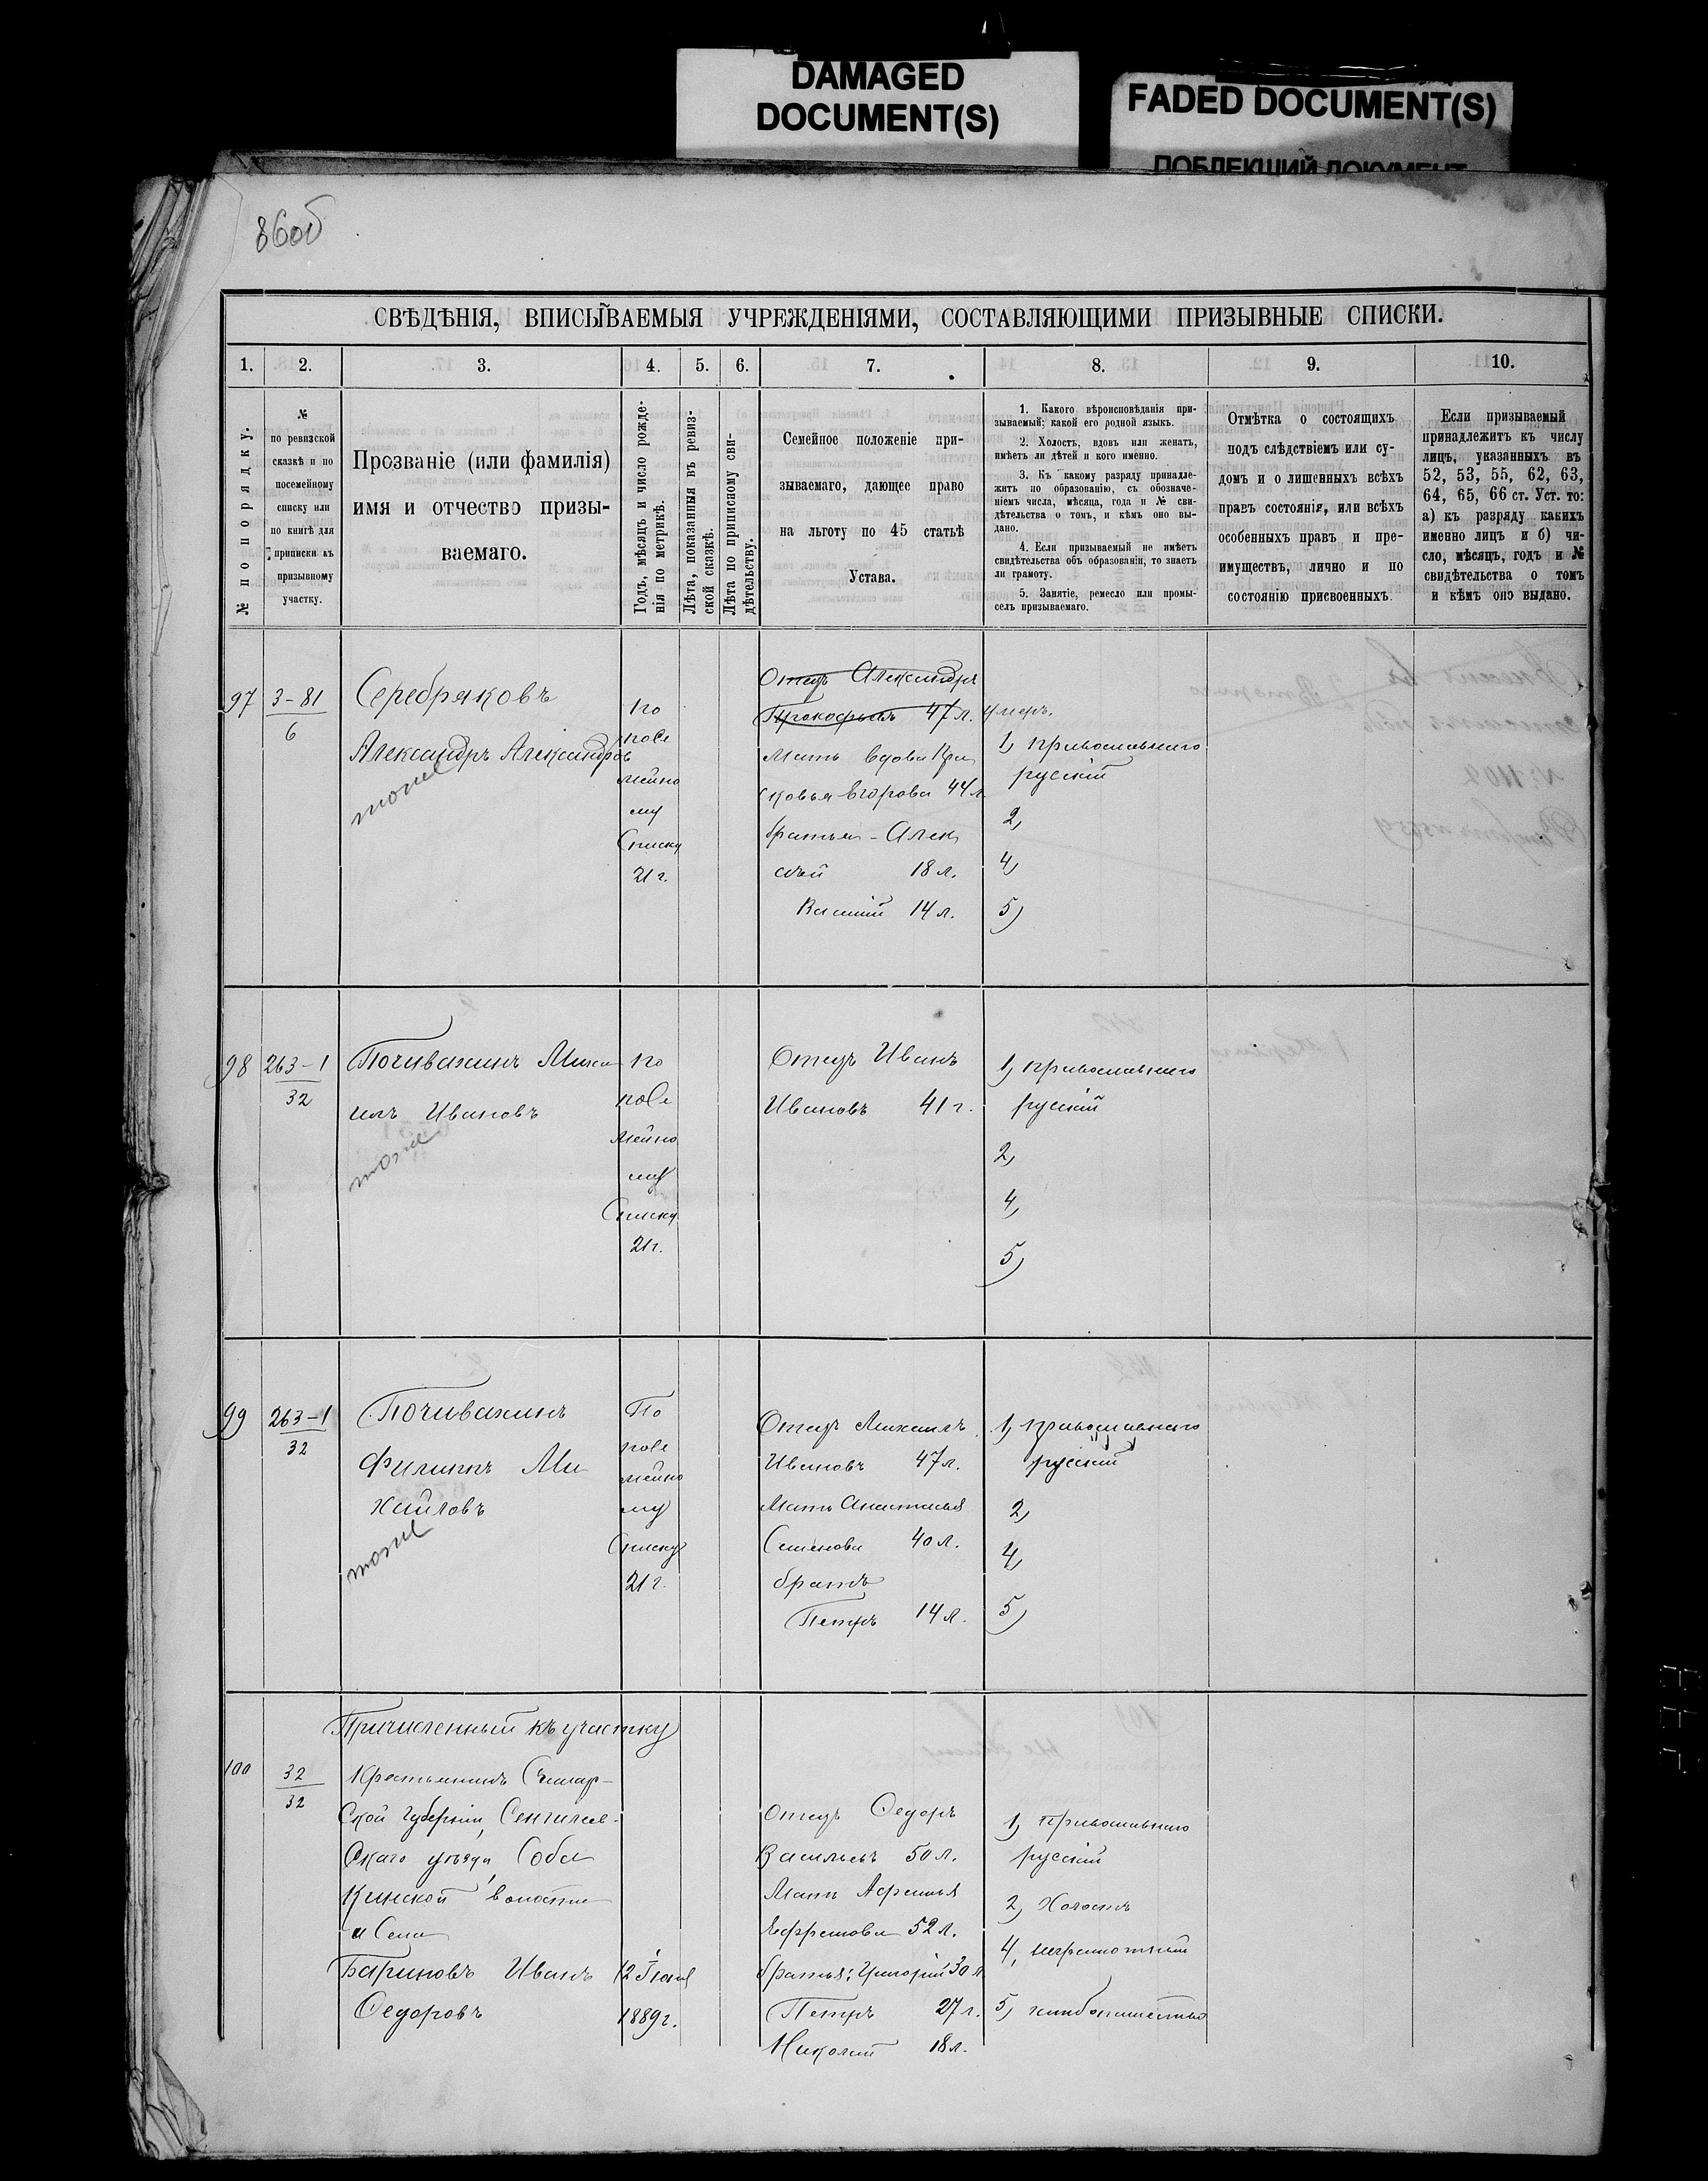 DAMAGED
DOCUMENT(S)
FADED DOCUMENT(S)
ПОБЛЕКШИЙ ДОКУМЕНТ
86об
СВѢДѢНІЯ, ВПИСЫВАЕМЫЯ УЧРЕЖДЕНІЯМИ, СОСТАВЛЯЮЩИМИ ПРИЗЫВНЫЕ СПИСКИ.
1. 2. 3. 4. 5. 6. 7. 8. 9. 10.
№ по порядку.
№
по ревизской
сказкѣ и по
посемейному
списку или
по книгѣ для
приписки къ
призывному
участку.
Прозваніе (или фамилія)
имя и отчество призы-
ваемаго.
Годъ, мѣсяцъ и число рожде-
нія по метрикѣ.
Лѣта, показанныя въ ревиз-
ской сказкѣ.
Лѣта по приписному сви-
дѣтельству.
Семейное положеніе при-
зываемаго, дающее право
на льготу по 45 статьѣ
Устава.
1. Какого вѣроисповѣданія при-
зываемый; какой его родной языкъ.
2. Холостъ, вдовъ или женатъ,
имѣетъ ли дѣтей и кого именно.
3. Къ какому разряду принадле-
житъ по образованію, съ обозначе-
ніемъ числа, мѣсяца, года и № сви-
дѣтельства о томъ, и кѣмъ оно вы-
дано.
4. Если призываемый не имѣетъ
свидѣтельства объ образованіи, то знаетъ
ли грамоту.
5. Занятіе, ремесло или промы-
селъ призываемаго.
Отмѣтка о состоящихъ
подъ слѣдствіемъ или су-
домъ и о лишенныхъ всѣхъ
правъ состоянія, или всѣхъ
особенныхъ правъ и пре-
имуществъ, лично и по
состоянію присвоенныхъ.
Если призываемый
принадлежитъ къ числу
лицъ, указанныхъ въ
52, 53, 55, 62, 63,
64, 65, 66 ст. Уст. то:
а) къ разряду какихъ
именно лицъ и б) чи-
сло, мѣсяцъ, годъ и №
свидѣтельства о томъ
и кѣмъ оно выдано.
97
3-81
6
Серебряковъ
Александръ Александровъ
тоже
По
посе
мейно
му
Списку
21 г.
Отецъ Александръ
Прокофьевъ 47 л. умеръ.
Мать вдова Пра
сковья Егорова 44 л.
братья - Алек
сѣй 18 л.
Василій 14 л.
1, православнаго
русскій
2,
4,
5)
98
263-1
32
Почивалинъ Миха
илъ Ивановъ
тоже
По
посе
мейно
му
Списку
21 г.
Отецъ Иванъ
Ивановъ 41 г.
1, православнаго
русскій
2,
4,
5)
99
263-1
32
Почивалинъ
Филиппъ Ми
хайловъ
тоже
По
посе
мейно
му
Списку
21 г.
Отецъ Михаилъ
Ивановъ 47 л.
Мать Анастасья
Семенова 40 л.
братъ
Петръ 14 л.
1, православнаго
русскій
2,
4,
5)
100
32
32
Причисленный къ участку
Крестьянинъ Симбир-
ской губерніи, Сенгилеев-
скаго уѣзда, Соба
кинской волости
и села
Бариновъ Иванъ
Федоровъ
12 Іюня
1889 г.
Отецъ Федоръ
Васильевъ 50 л.
Мать Афимья
Ефремова 52 л.
братья: Григорій 30 л.
Петръ 27 л.
Николай 18 л.
1, Православнаго
русскій
2, Холостъ
4, неграмотный
5, хлѣбопашество